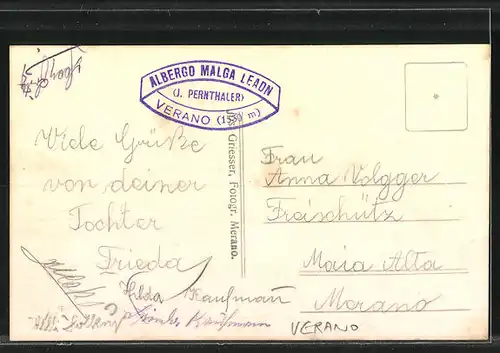 ALBERGO MALGA LEADN
(J. PERNTHALER)
VERANO (1550 m)
Viele Grüße
von deiner
Tochter
Frieda
Hilda Kaufmann
Kaufmann
Griesser, Fotogr. Merano.
Frau
Anna Volgger
Freischütz
Maia Alta
Merano
VERANO